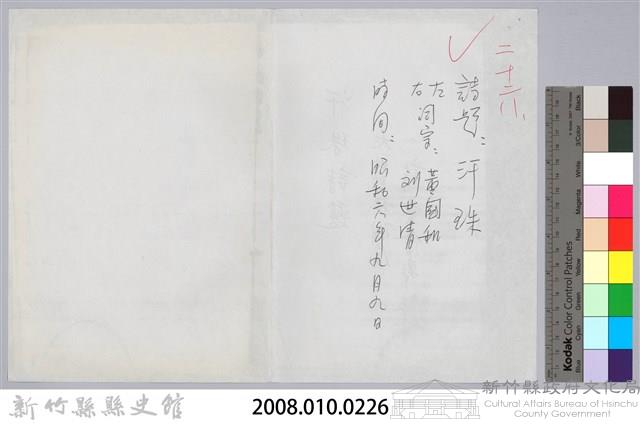 二十六、
詩題：汗珠
左詞宗：黃國和
右 刘世清
時间：昭和六年九月九日
Black
3/Color
White
Magenta
Red
Yellow
Green
Cyan
Blue
Kodak Color Control Patches
新竹縣縣史館
2008.010.0226
新竹縣政府文化局
Cultural Affairs Bureau of Hsinchu
County Government